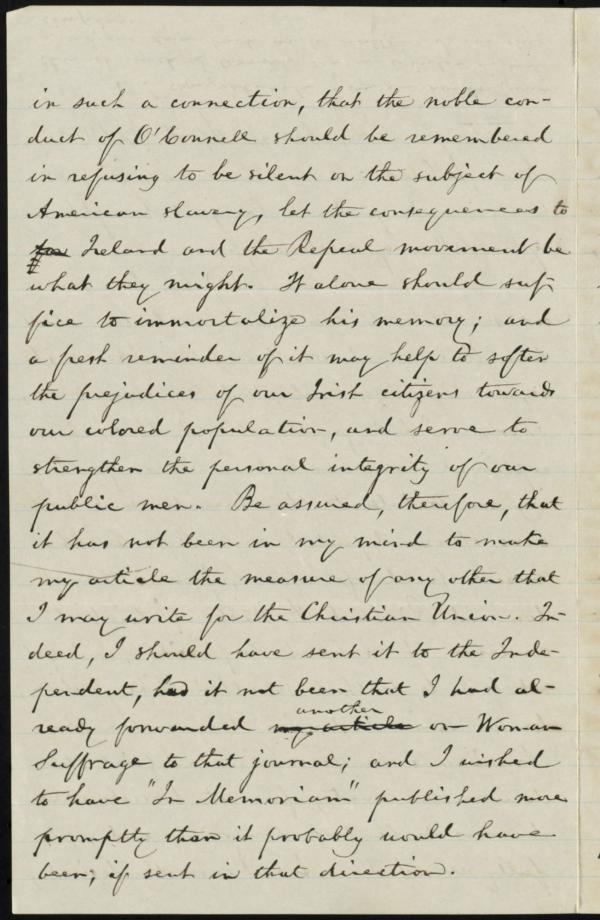 in such a connection, that the noble con-
duct of O'Connell should be remembered
in refusing to be silent on the subject of
American slavery, let the consequences to
Ireland and the Repeal movement be
what they might. It alone should suf-
fice to immortalize his memory; and
a fresh reminder of it may help to soften
the prejudices of our Irish citizens towards
our colored population, and serve to
strengthen the personal integrity of our
public men. Be assured, therefore, that
it has not been in my mind to make
my article the measure of any other that
I may write for the Christian Union. In-
deed, I should have sent it to the Inde-
pendent, had it not been that I had al-
another
ready forwarded my article on Woman
Suffrage to that journal; and I wished
to have "In Memoriam" published more
promptly than it probably would have
been, if sent in that direction.